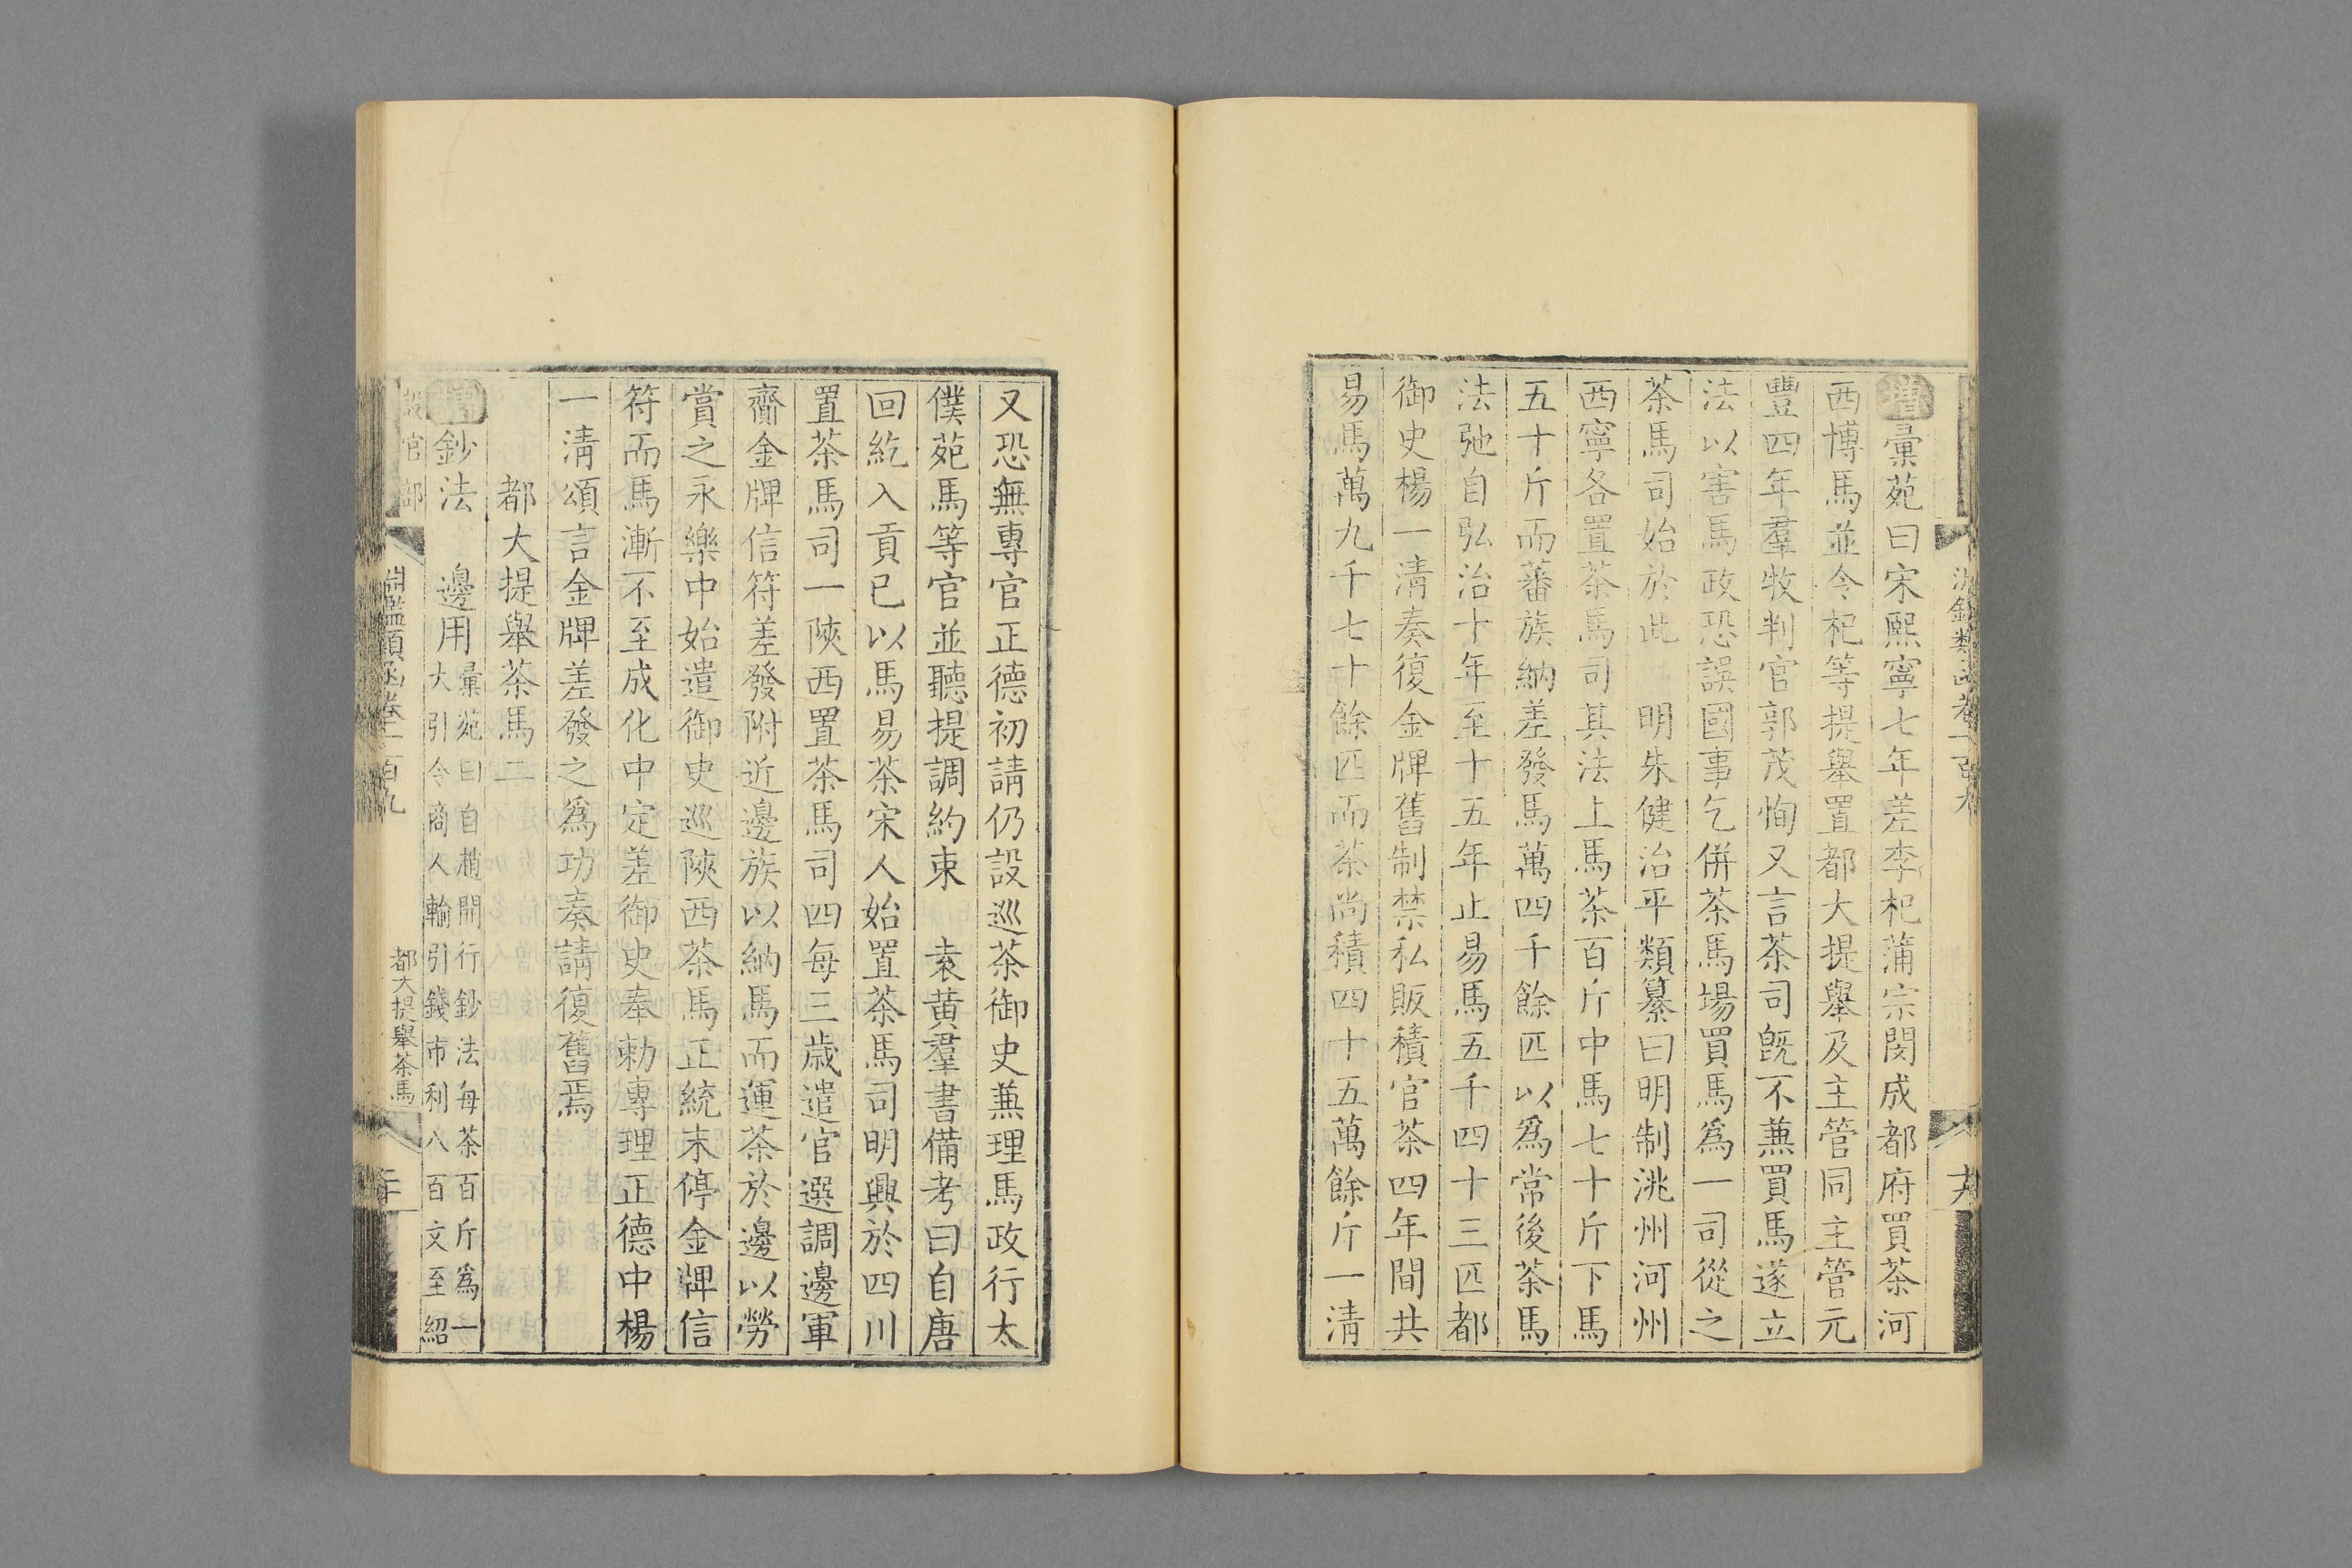 增彙苑曰宋熙寧七年差李杞蒲宗閔成都府買茶河
西博馬並令杞等提舉置都大提舉及主管同主管元
豐四年羣牧判官郭茂恂又言茶司旣不兼買馬遂立
法以害馬政恐誤國事乞併茶馬場買馬爲一司從之
茶馬司始於此　明朱健治平類纂曰明制洮州河州
西寧各置茶馬司其法上馬茶百斤中馬七十斤下馬
五十斤而蕃族納差發馬萬四千餘匹以爲常後茶馬
法弛自弘治十年至十五年止易馬五千四十三匹都
御史楊一清奏復金牌舊制禁私販積官茶四年間共
易馬萬九千七十餘匹而茶尚積四十五萬餘斤一清
又恐無專官正德初請仍設巡茶御史兼理馬政行太
僕苑馬等官並聽提調約束　袁黄羣書備考曰自唐
回紇入貢已以馬易茶宋人始置茶馬司明興於四川
置茶馬司一陜西置茶馬司四每三歲遣官選調邊軍
齎金牌信符差發附近邊族以納馬而運茶於邊以勞
賞之永樂中始遣御史巡陜西茶馬正統末停金牌信
符而馬漸不至成化中定差御史奉勅專理正德中楊
一清頌言金牌差發之爲功奏請復舊焉
都大提舉茶馬二
增鈔法　邊用彙苑曰自趙開行鈔法每茶百斤爲一
大引令商人輸引錢市利八百文至紹
設官部
淵鑑類函卷一百九
都大提舉茶馬